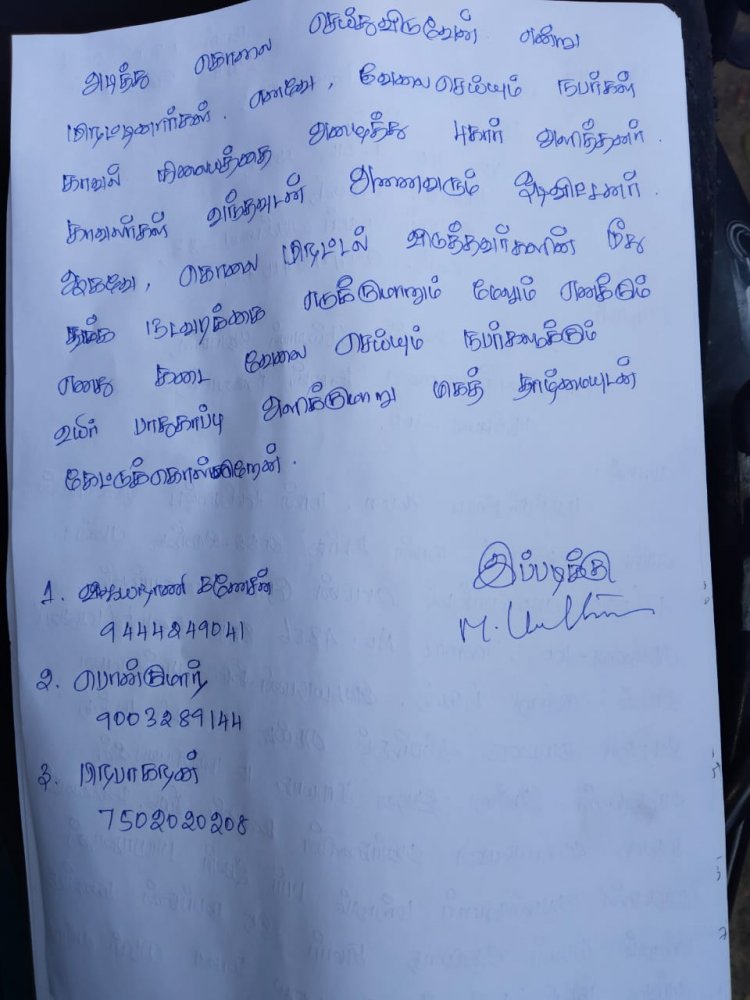 அடித்து கொலை செய்துவிடுவேன் என்று
மிரட்டினார்கள். எனவே, வேலை செய்யும் நபர்கள்
காவல் நிலையத்தை அழைத்து புகார் அளித்தனர்.
காவலர்கள் வந்தவுடன் அனைவரும் ஓடிவிட்டனர்.
ஆகவே, கொலை மிரட்டல் விடுத்தவர்களின் மீது
தக்க நடவடிக்கை எடுக்குமாறும் மேலும் எனக்கும்
எனது கடை வேலை செய்யும் நபர்களுக்கும்
உயிர் பாதுகாப்பு அளிக்குமாறு மிகத் தாழ்மையுடன்
கேட்டுக்கொள்கிறேன்.
இப்படிக்கு
M.
1. கணேசன்
9444249041
2. பொன்குமார்
9003289144
3. பிரபாகரன்
7502020208